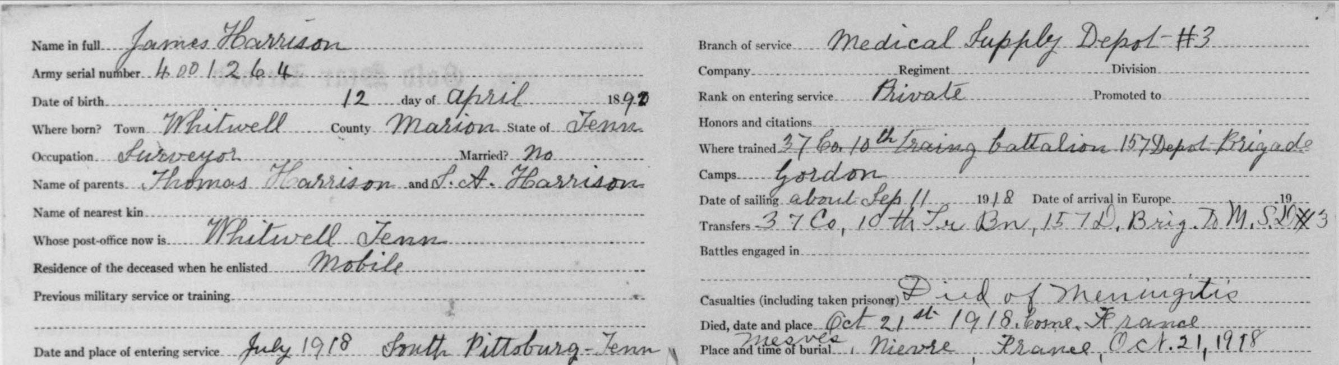 Name in full James Harrison
Army serial number 4001264
Date of birth 12 day of April 1892
Where born? Town Whitwell County Marion State of Tenn
Occupation Surveyor Married? no
Name of parents Thomas Harrison and S.A. Harrison
Name of nearest kin
Whose post-office now is Whitwell Tenn
Residence of the deceased when he enlisted Mobile
Previous military service or training
Date and place of entering service July 1918 South Pittsburg-Tenn
Branch of service Medical Supply Depot-#3
Company Regiment Division
Rank on entering service Private Promoted to
Honors and citations
Where trained 37 Co. 10th traing battalion 157 Depot Brigade
Camps Gordon
Date of sailing about Sep 11 1918 Date of arrival in Europe 19
Transfers 37 Co, 10th Tr Bn, 157 D. Brig. To M.S.D #3
Battles engaged in
Casualties (including taken prisoner) Died of Meningitis
Died, date and place Oct 21st 1918. France
Place and time of burial Mesves, Nievre, France, Oct. 21, 1918